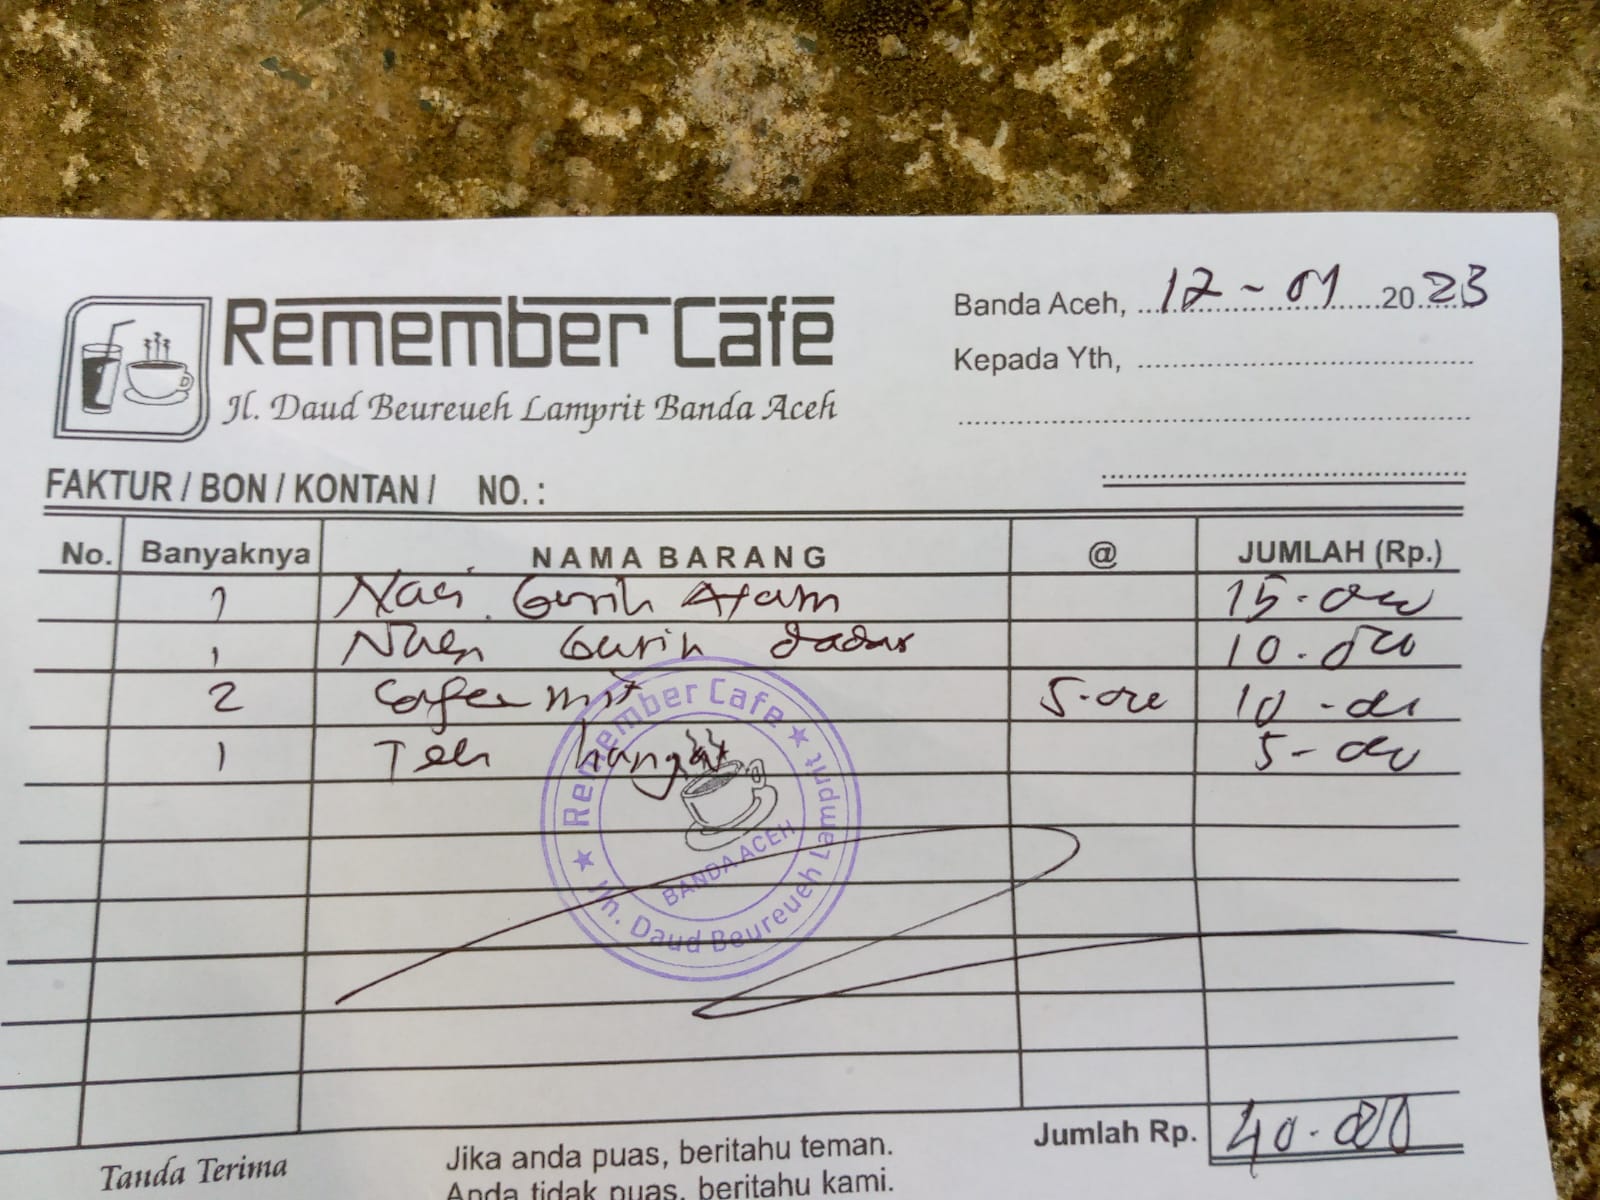 Remember Cafe
Jl. Daud Beureueh Lamprit Banda Aceh
Banda Aceh, 12 - 01 2023
Kepada Yth,
FAKTUR / BON / KONTAN / NO. :
No. Banyaknya NAMA BARANG @ JUMLAH (Rp.)
1 Nasi Gurih Ayam 15.000
1 Nasi Gurih dadar 10.000
2 5.000 10.000
1 Teh hangat 5.000
Remember Cafe
BANDA ACEH
Jln. Daud Beureueh Lamprit
Jumlah Rp. 40.000
Tanda Terima
Jika anda puas, beritahu teman.
Anda tidak puas, beritahu kami.